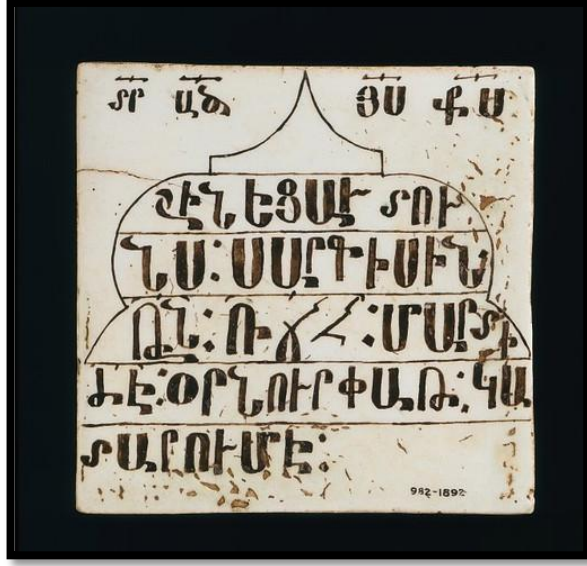 ՏՐ ԱԾ ՅՍ ՔՍ
ՇԻՆԵՑԱՒ ՏՈՒ
ՆՍ: ՍԱՐԳԻՍԻՆ
ԹՎՆ: ՌՃՀ: ՄԱՐՏԻ
ԺԷ: ՕՐՆՈՒՐՓԱԹ: ԿԱ
ՏԱՐՈՒՄԷ:
982-1892